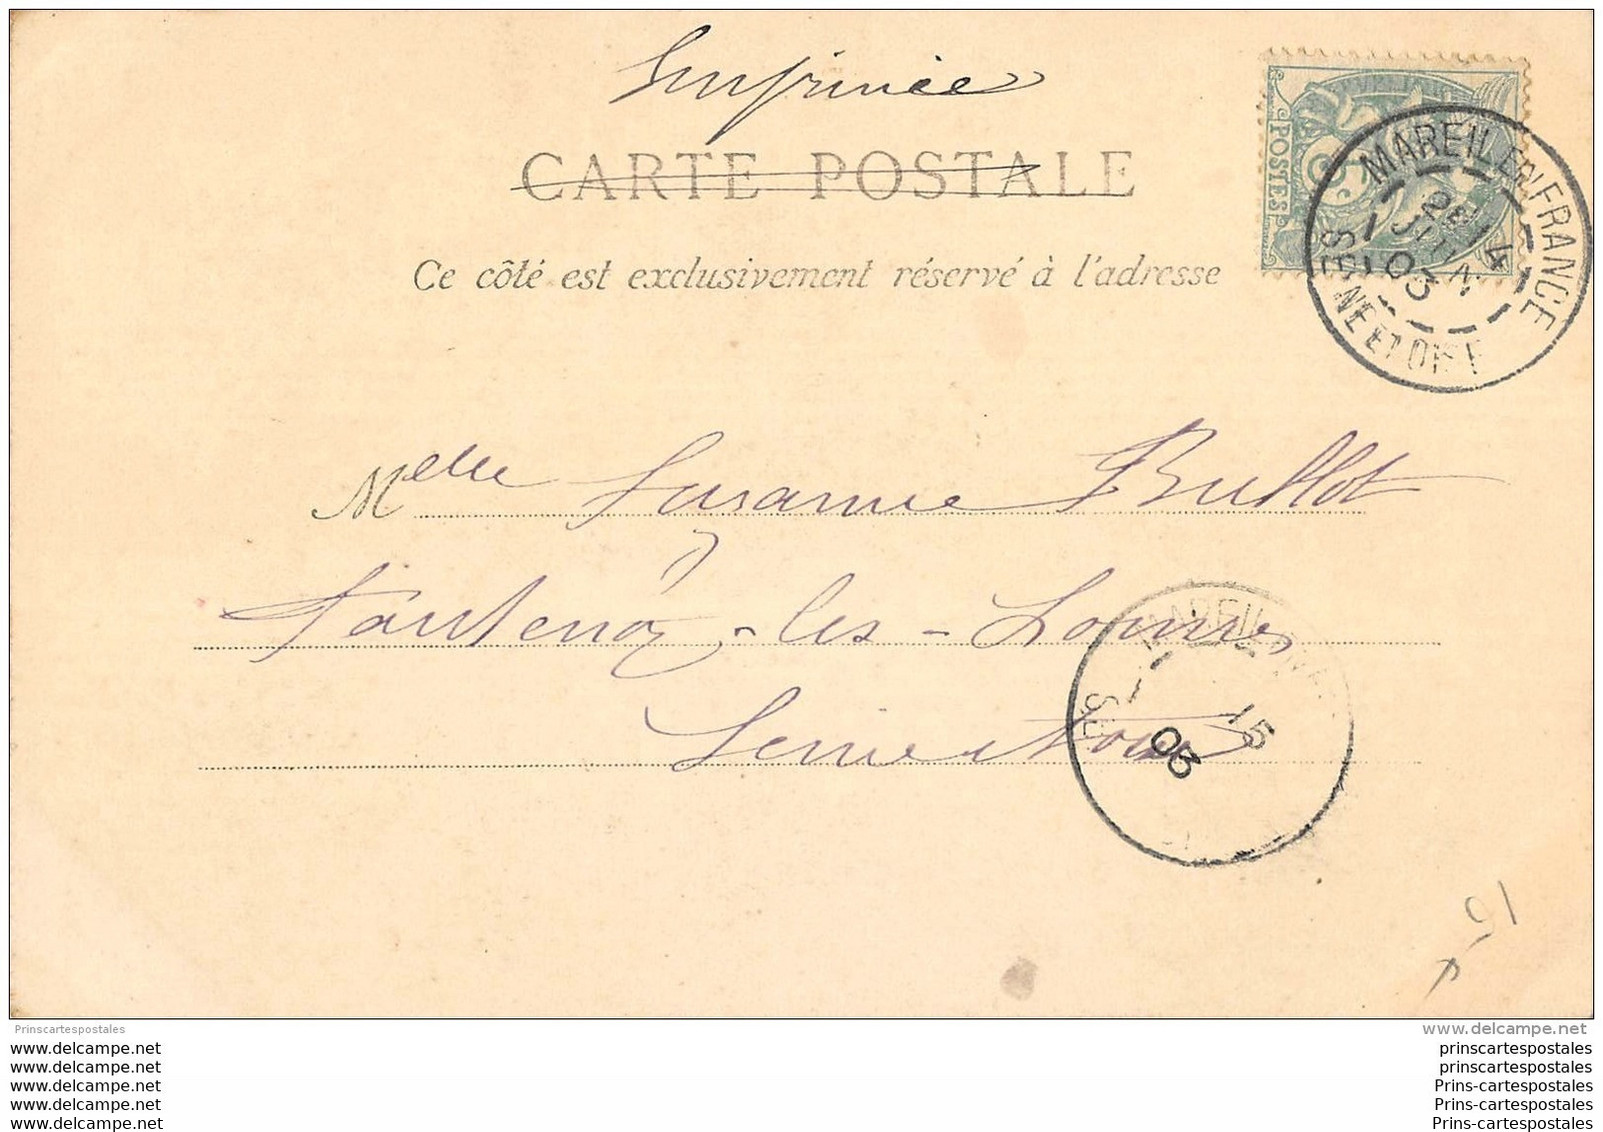 Imprimée
CARTE POSTALE
Ce côté est exclusivement réservé à l'adresse
POSTES
MAREIL EN FRANCE
2E 14
JUIN
03
SEINE ET OISE
Melle Suzanne Bullot
Fontenay-les-Louvres
Seine et Oise
MAREIL EN
15
03
SEI
15
Prinscartespostales
www.delcampe.net
www.delcampe.net
www.delcampe.net
www.delcampe.net
www.delcampe.net
www.delcampe.net
prinscartespostales
prinscartespostales
Prins-cartespostales
Prins-cartespostales
Prins-cartespostales